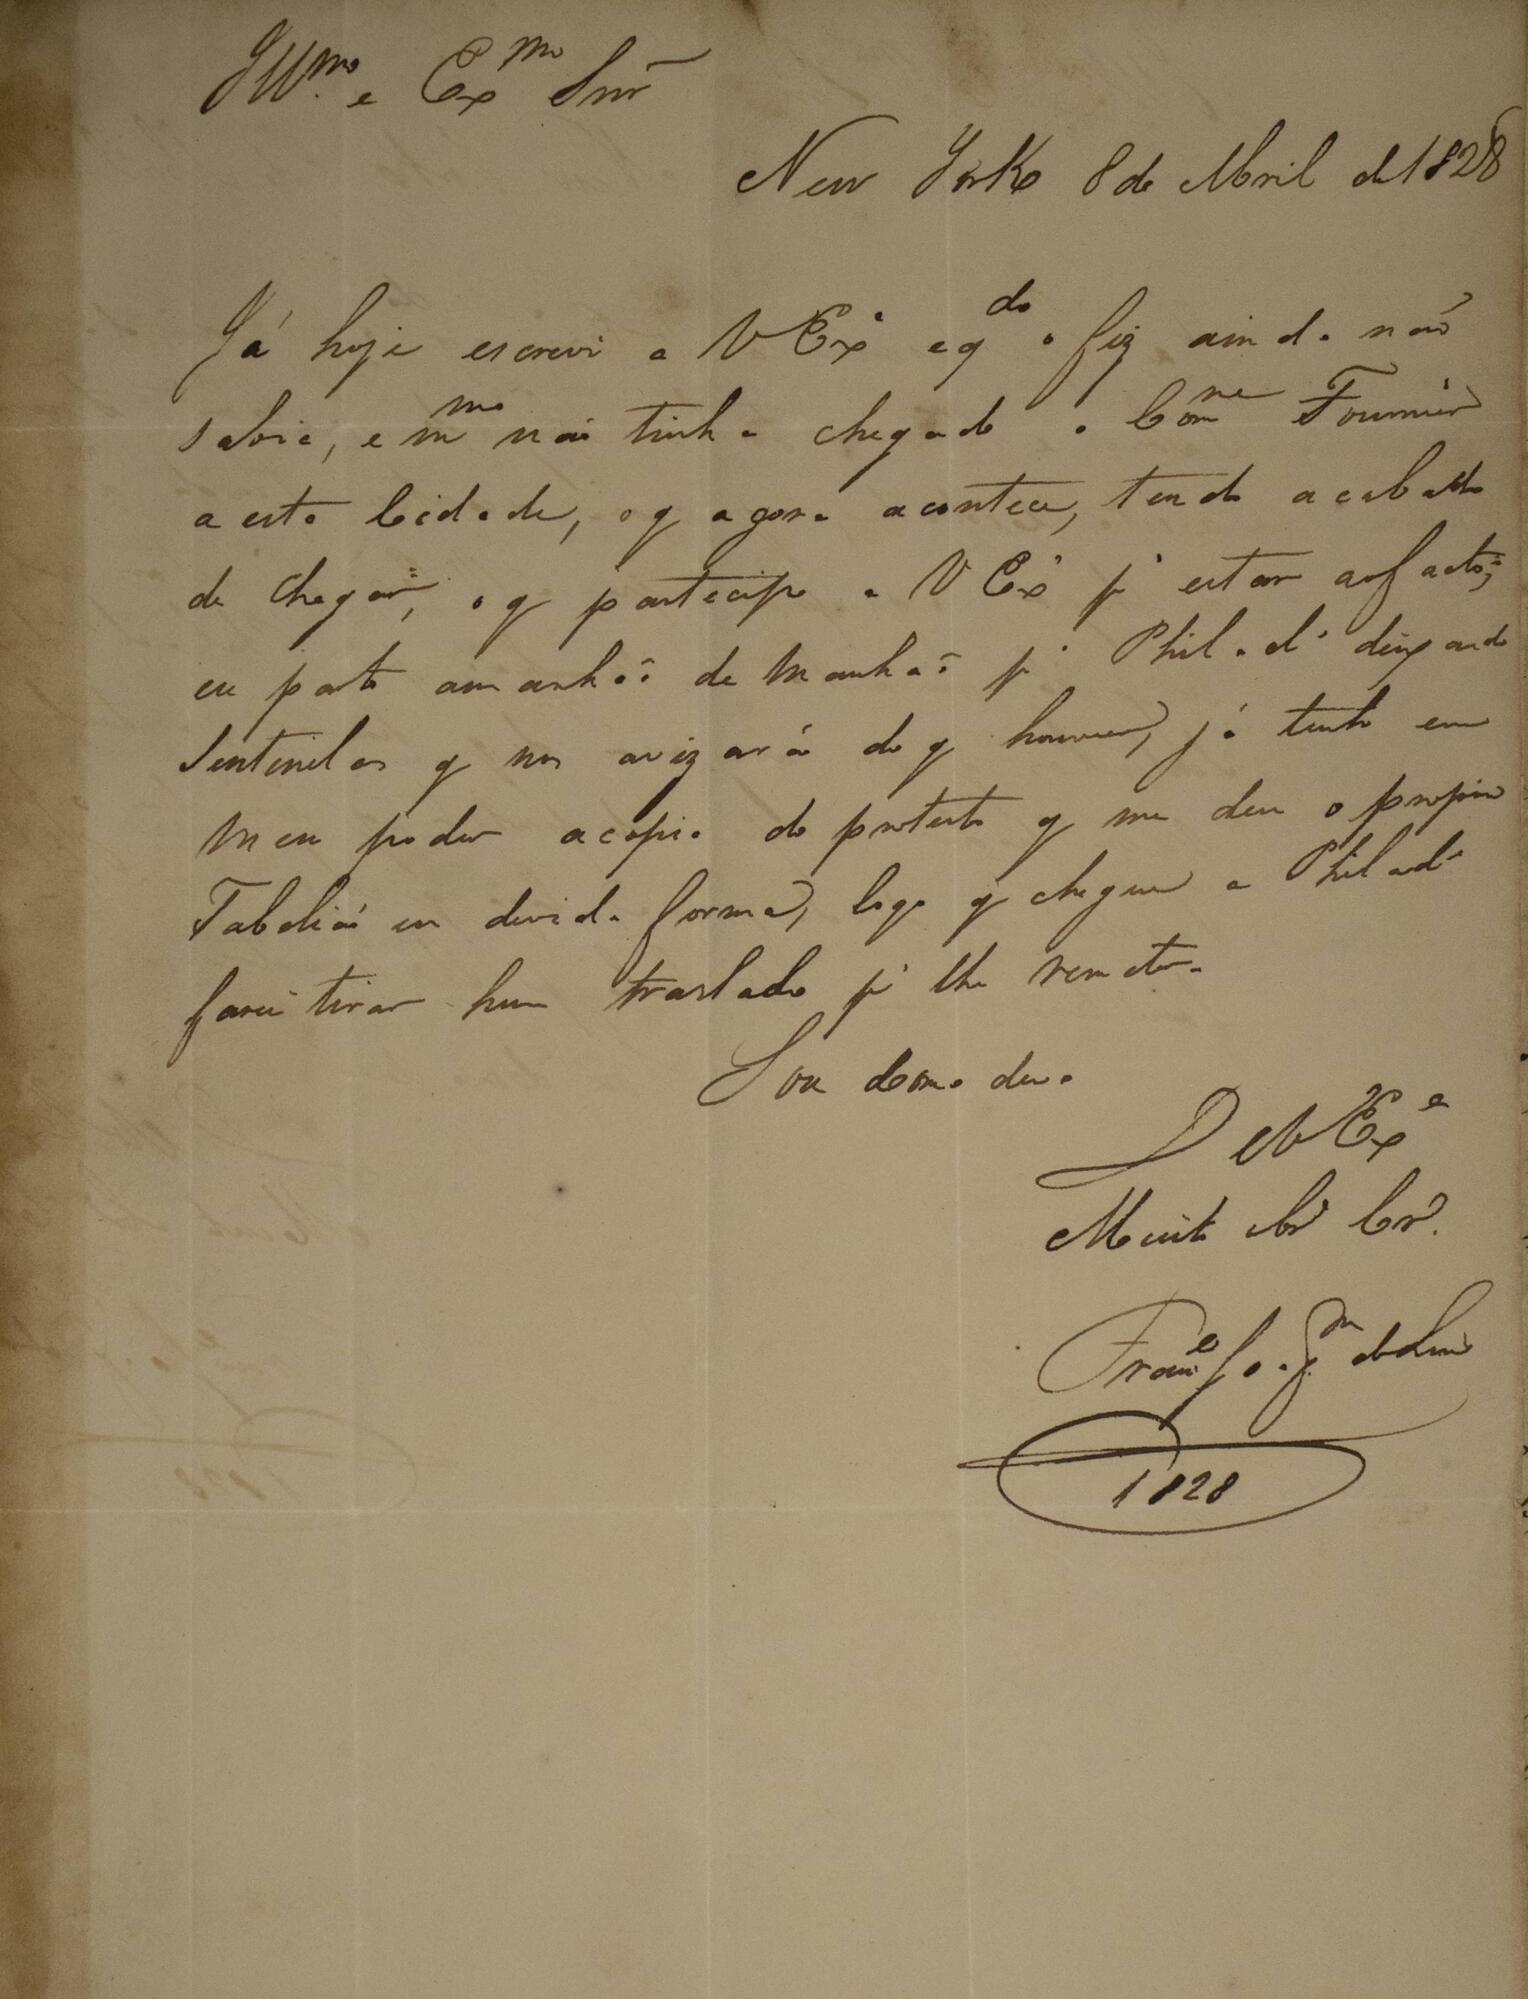 Illmo. e Exmo Snr
New York 8 de Abril de 1828
Já hoje escrevi a V Exa e qdo o fiz ainda não
sabia, e mmo não tinha chegado o Comne Fournier
a esta Cidade, o q agora acontece, tendo acabado
de chegar, o q partecipo a V Exa pa estar ao facto,
eu parto amanhãa de manhãa pa Philada deixando
Sentinelas q me avizará do q houver, já tenho em
meu poder a copia do protesto q me deu o proprio
Tabelião em devida forma, logo q chegue a Philada
farei tirar hum traslado pa lhe remeter.
Sou Como devo
De V Exa
Muito Cr.
1828